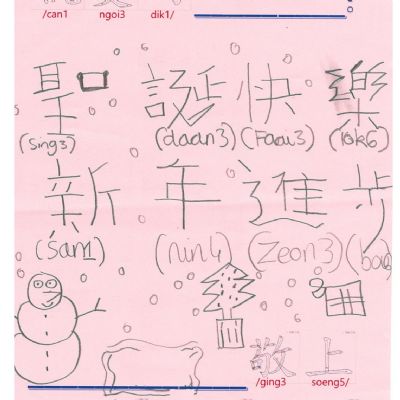 /can1 ngoi3 dik1/
聖 誕 快 樂
(Sing3) (daan3) (Faai3) (lok6)
新 年 進 步
(San1) (nin4) (Zeon3) (bou
敬 上
/ging3 soeng5/